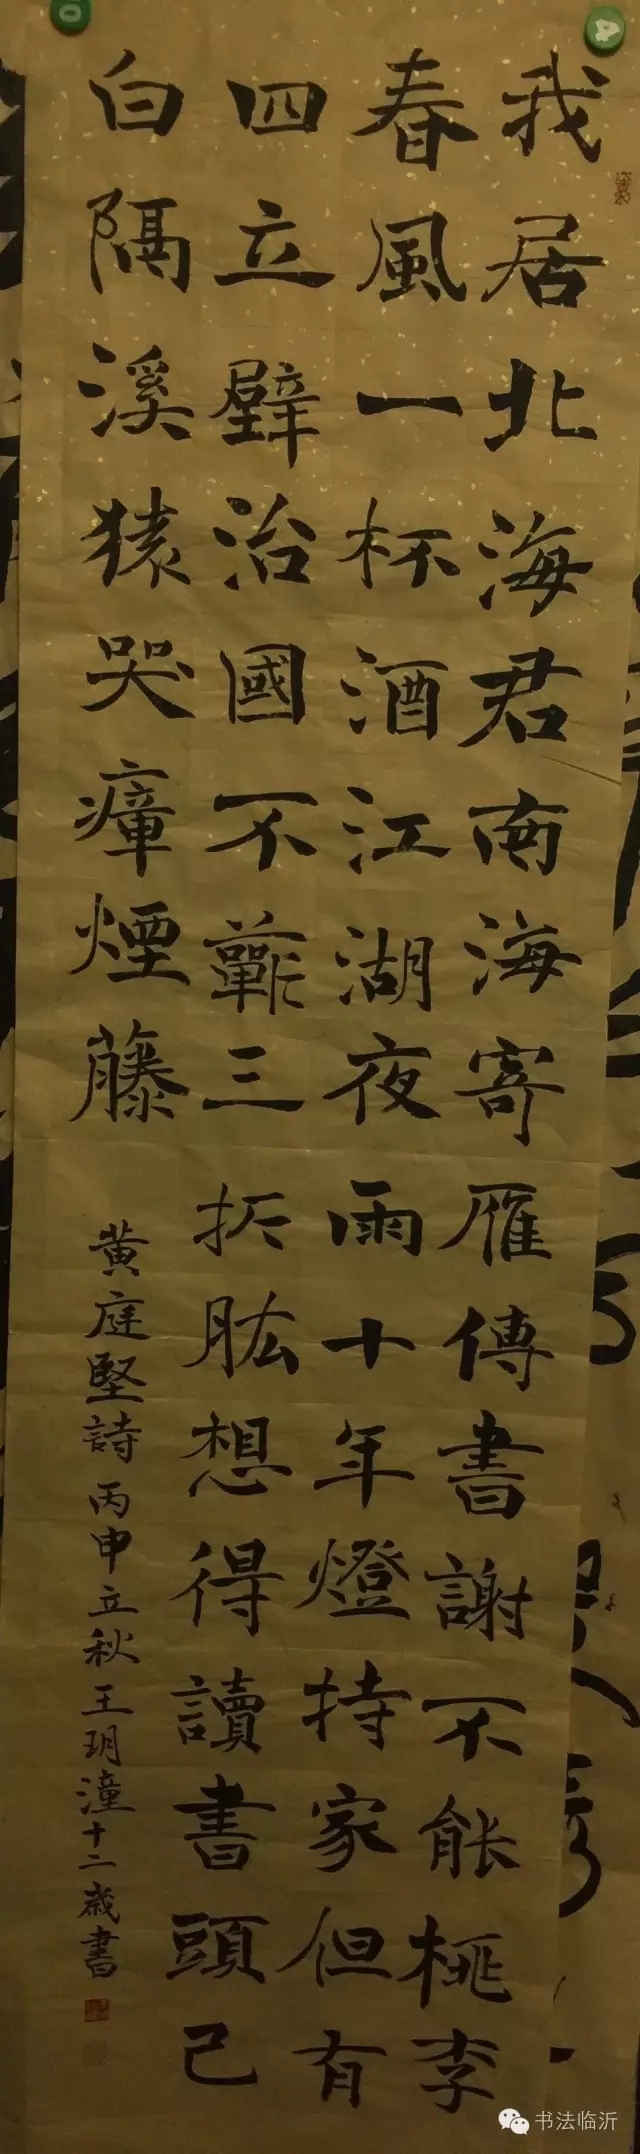 我居北海君南海寄雁傳書謝不能桃李
春風一杯酒江湖夜雨十年燈持家但有
四立壁治國不蘄三折肱想得讀書頭已
白隔溪猿哭瘴煙藤
黄庭堅詩丙申立秋王玥潼十二歲書
4
书法临沂